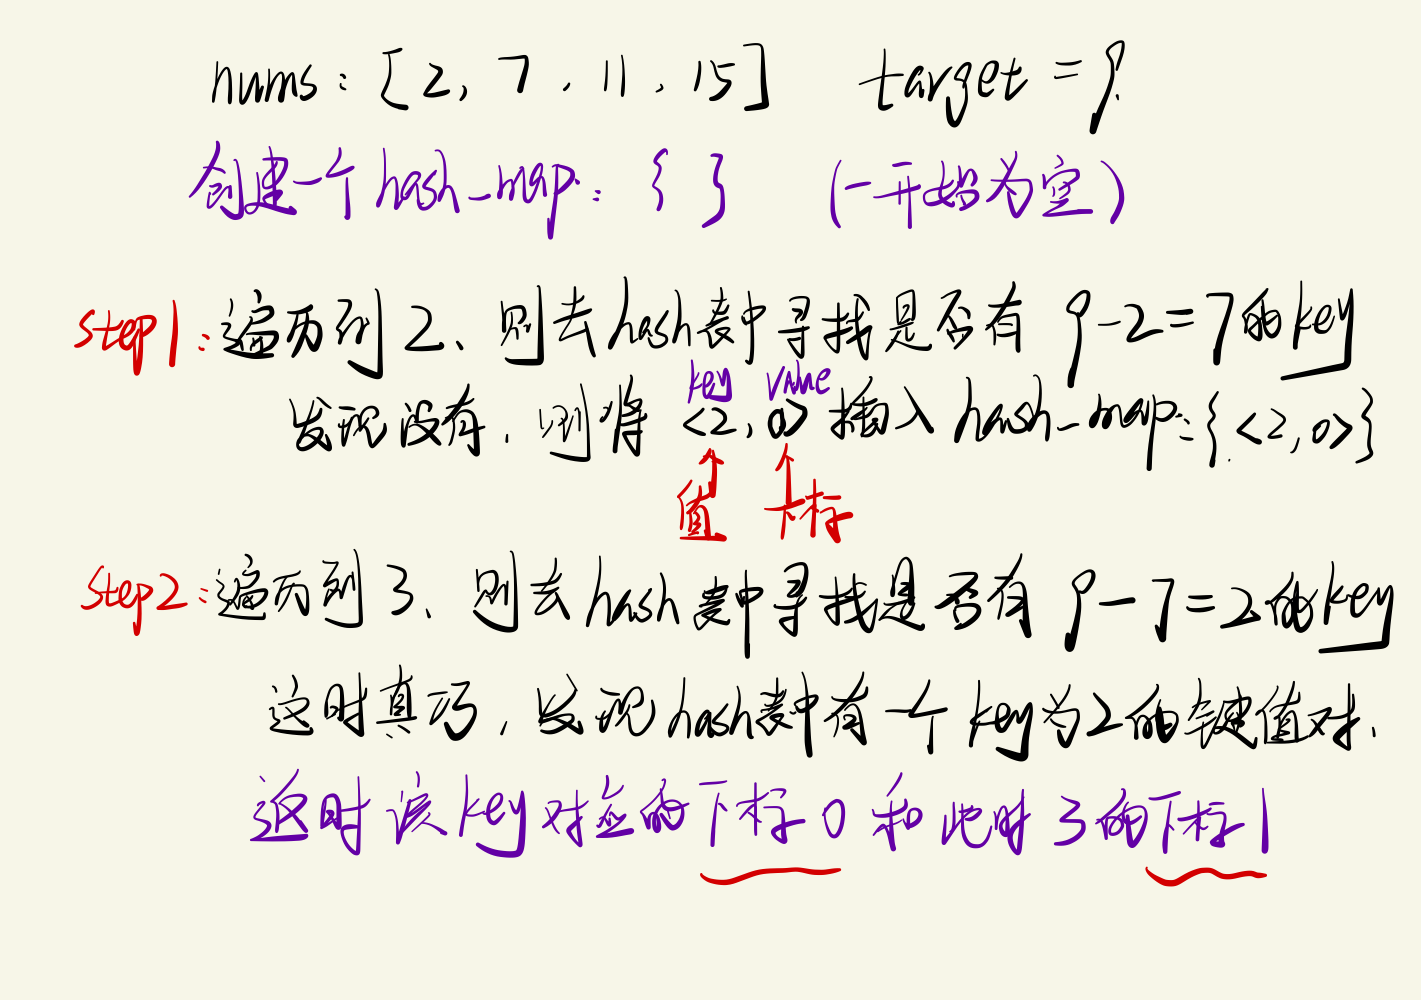 nums: [2, 7, 11, 15] target = 9.
创建一个 hash_map: { } (一开始为空)
step1: 遍历到 2、则去hash表中寻找是否有 9-2=7的key
key value
发现没有, 则将 <2, 0> 插入 hash_map: { <2, 0> }
值 下标
step2: 遍历到 3、则去hash表中寻找是否有 9-7=2的key
这时真巧, 发现hash表中有一个key为2的键值对.
这时该key对应的下标0和此时3的下标1